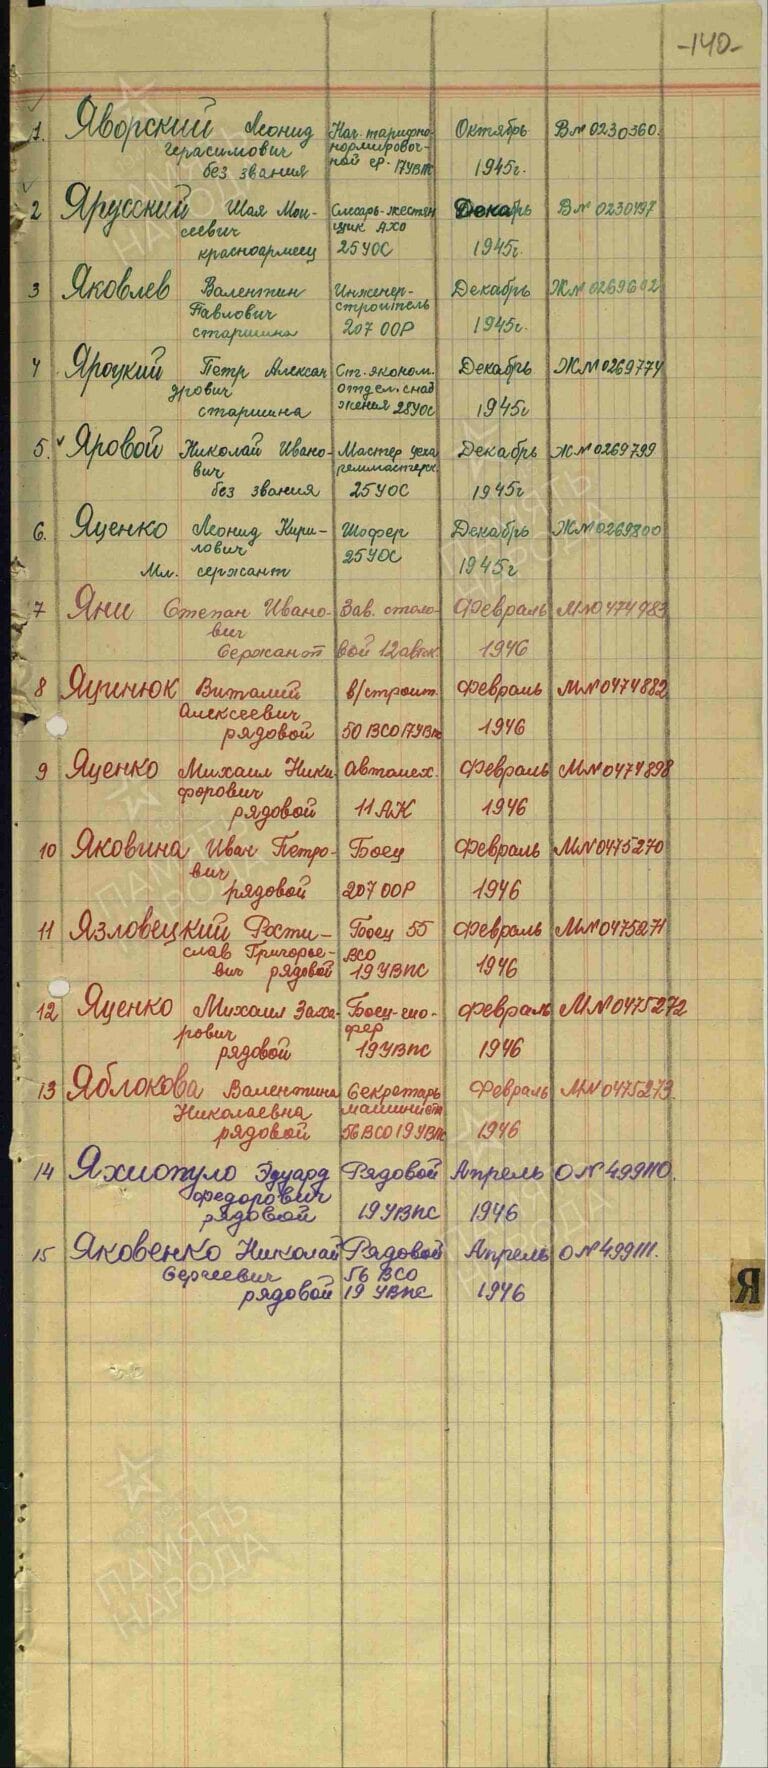 -140-
1. Яворский Леонид Нач. тарифно- Октябрь В№ 0230360.
Герасимович нормировоч-
без звания ной гр. 17УВПС 1945г.
2 Ярусский Шая Мои- Слесарь-жестян Декабрь В№ 0230497
сеевич щик АХО
красноармеец 25УОС 1945г.
3 Яковлев Валентин Инженер- Декабрь Ж№ 0269692
Павлович строитель
старшина 207 ООР 1945г.
4 Яроцкий Петр Алексан Ст. эконом. Декабрь Ж№ 0269774
дрович отдел. снаб
старшина жения 28УОС 1945г
5. Яровой Николай Ивано- Мастер цеха Декабрь Ж№ 0269799
вич реммастерск.
без звания 25УОС 1945г
6. Яценко Леонид Кири- Шофер Декабрь Ж№ 0269800
лович 25УОС
Мл. сержант 1945г
7 Яни Степан Ивано- Зав. столо- Февраль М№ 0474983
вич
Сержант вой 12автк. 1946
8 Яцинюк Виталий в/строит. Февраль М№ 0474882
Алексеевич
рядовой 50 ВСО 17УВПС 1946
9 Яценко Михаил Ники Автомех. Февраль М№ 0474898
форович
рядовой 11 АК 1946
10 Яковина Иван Петро- Боец Февраль М№ 0475270
вич
рядовой 207 ООР 1946
11 Язловецкий Рости- Боец 55 Февраль М№ 0475271
слав Григорье- ВСО
вич рядовой 19 УВПС 1946
12 Яценко Михаил Заха- Боец-шо- Февраль М№ 0475272
рович фер
рядовой 19 УВПС 1946
13 Яблокова Валентина Секретарь Февраль М№ 0475273.
Николаевна машинист
рядовой 56 ВСО 19 УВПС 1946
14 Яхиопуло Эдуард Рядовой Апрель О№ 499110.
Федорович
рядовой 19 УВПС 1946
15 Яковенко Николай Рядовой Апрель О№ 499111.
Сергеевич 56 ВСО
рядовой 19 УВПС 1946
Я
ПАМЯТЬ
НАРОДА